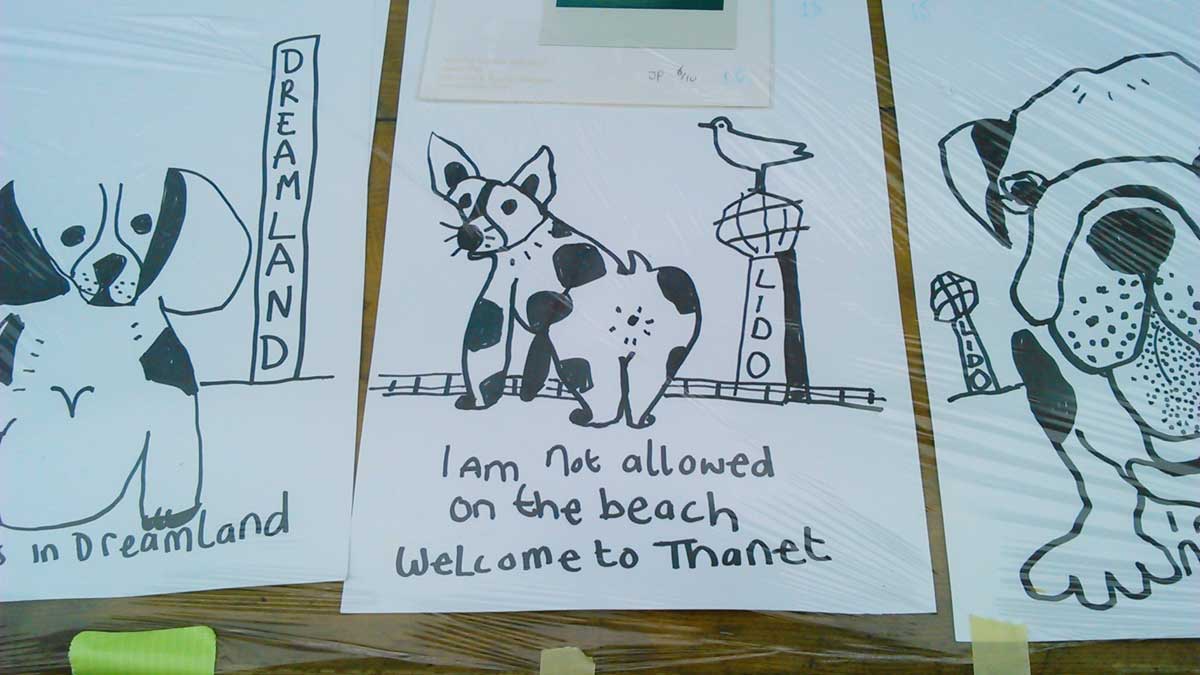 DREAMLAND
s in Dreamland
JP 6/10
LIDO
I Am not allowed
on the beach
Welcome to Thanet
LIDO